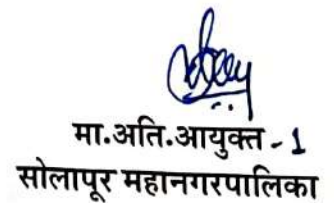 मा.अति.आयुक्त - 1
सोलापूर महानगरपालिका